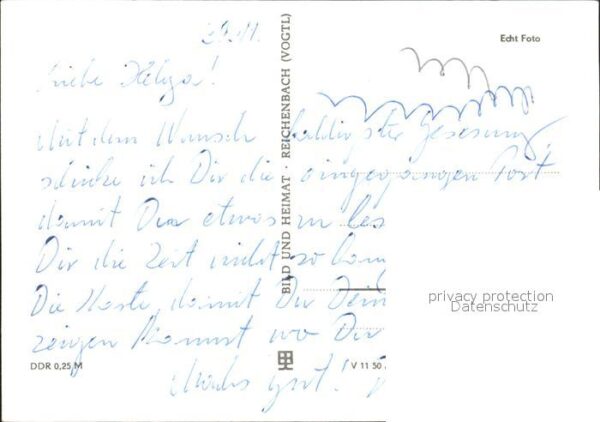 Echt Foto
Liebe Helga!
Mit dem Wunsch baldigster Genesung
schicke ich Dir die eingegangen Post
damit Du etwas zu les
Dir die Zeit nicht so
Die Karte, damit Du Dein
zeigen kannst wo Du
Machs gut!
BILD UND HEIMAT · REICHENBACH (VOGTL)
privacy protection
Datenschutz
DDR 0,25 M
V 11 50